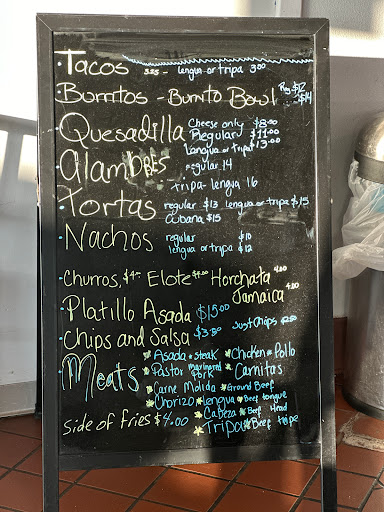 · Tacos 3.25 - lengua or tripa 3.50
· Burritos - Burrito Bowl Reg $12 $14
· Quesadilla Cheese only $8.00
Regular $11.00
Langua or tripa $13.00
· Alambres regular 14
tripa-lengua 16
· Tortas regular $13 lengua or tripa $15
Cubana $15
· Nachos regular $10
lengua or tripa $12
· Churros, $4- Elote $4.00 Horchata 4.00
Jamaica 4.00
· Platillo Asada $15.00
· Chips and Salsa $3.50 Just Chips
Meats * Asada * Steak * Chicken * Pollo
* Pastor marinered Pork * Carnitas
* Carne Molida * Ground Beef
* Chorizo * lengua * Beef tongue
* Cabeza * Beef Head
* Tripa * Beef tripe
Side of fries $4.00